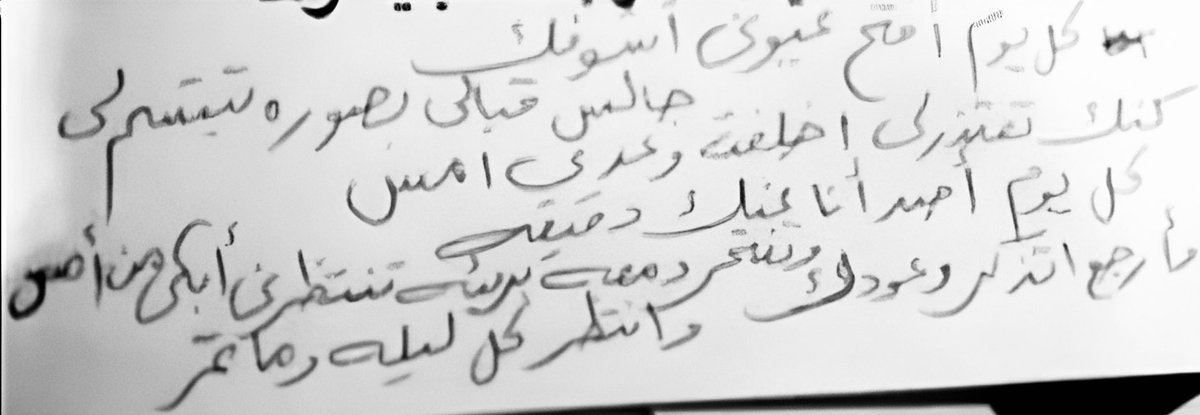 كل يوم افتح عيوني اشوفك
جالس قبالي بصوره تبتسم لي
كنك تعتذر لي اخلفت وعدي امس
كل يوم أصد أنا عنك دقيقه
وأرجع اتذكر وعودك وتنتحر دمعه بريئه تنتظرني أبكي من أمس
وانتظر كل ليله وما تمر